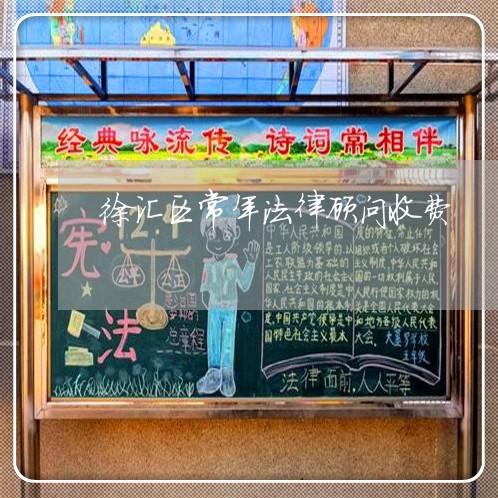 经典咏流传 诗词常相伴
徐汇区常年法律顾问收费
宪
法
12.4
公平
公正
总章程
中华人民共和国
是工人阶级领导的,以
工农联盟为基础的
人民民主专政的社会主义
国家,社会主义制度是中
华人民共和国的根本制
度,中国共产党领导是中
国特色社会主义最本
质的特征,禁止任何
组织或者个人破坏社会
主义制度,中华人民共和
国的一切权利属于人民,
人民行使国家权力的机
关是全国人民代表大会
和地方各级人民代表
大会。
五年级
法律面前,人人平等